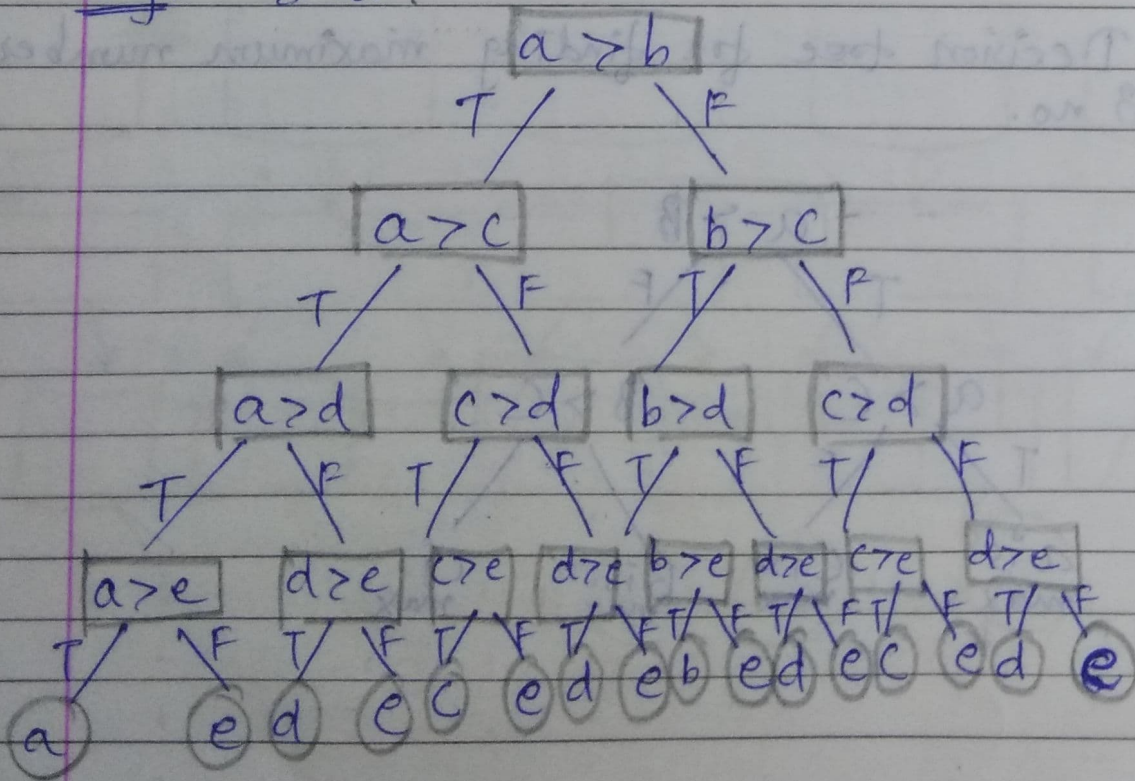 a > b
T F
a > c b > c
T F T F
a > d c > d b > d c > d
T F T F T F T F
a > e d > e c > e d > e b > e d > e c > e d > e
T F T F T F T F T F T F T F T F
a e d e c e d e b e d e c e d e